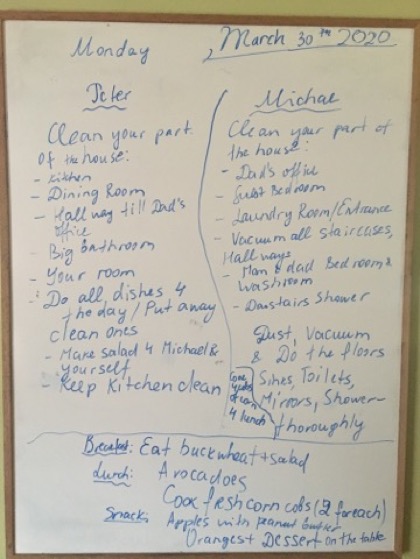 Monday
March 30th 2020
Peter
Clean your part
of the house:
- Kitchen
- Dining Room
- Hall way till Dad's
office
- Big bathroom
- Your room
- Do all dishes 4
the day / Put away
clean ones
- Make salad 4 Michael &
yourself
- Keep Kitchen clean
Michael
Clean your part of
the house:
- Dad's office
- Guest Bedroom
- Laundry Room/Entrance
- Vacuum all staircases,
Hallways
- Mom & dad Bedroom &
washroom
- Downstairs Shower
Dust, Vacuum
& Do the floors
Sinks, Toilets,
Mirrors, Shower-
thoroughly
4 lunch
Breakfast: Eat buckwheat + salad
Lunch: Avocadoes
Cook fresh corn cobs (2 for each)
Snack: Apples with peanut butter
Oranges + Dessert on the table